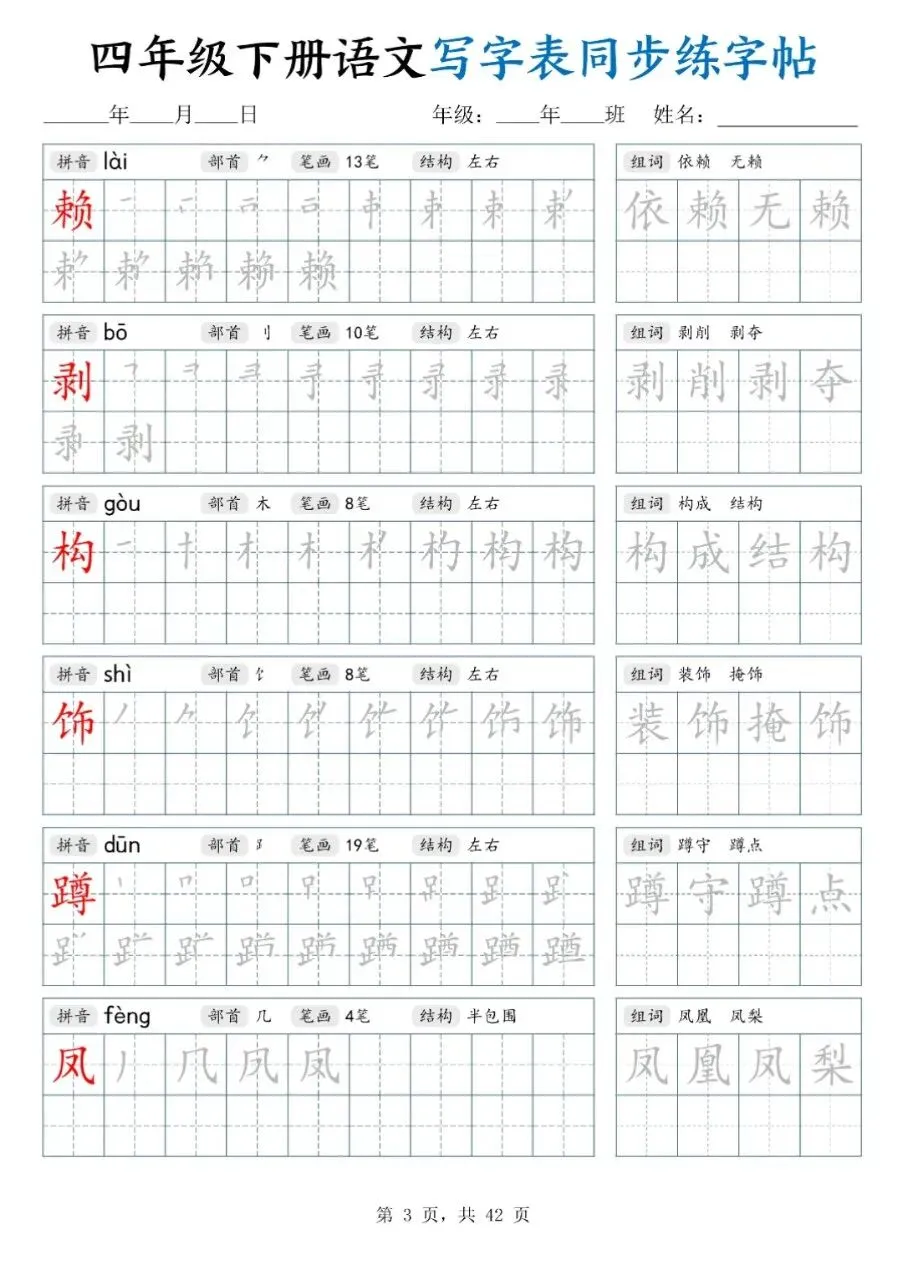 四年级下册语文写字表同步练字帖
______年____月____日 年级：____年____班 姓名：____________
拼音 lài 部首 ⺈ 笔画 13笔 结构 左右 组词 依赖 无赖
赖 依 赖 无 赖
赖
拼音 bō 部首 刂 笔画 10笔 结构 左右 组词 剥削 剥夺
剥 剥 削 剥 夺
剥
拼音 gòu 部首 木 笔画 8笔 结构 左右 组词 构成 结构
构 一 十 才 木 构 构 成 结 构
拼音 shì 部首 饣 笔画 8笔 结构 左右 组词 装饰 掩饰
饰 丿 𠂊 饣 饰 装 饰 掩 饰
拼音 dūn 部首 ⻊ 笔画 19笔 结构 左右 组词 蹲守 蹲点
蹲 蹲 守 蹲 点
拼音 fèng 部首 几 笔画 4笔 结构 半包围 组词 凤凰 凤梨
凤 丿 几 凤 凤 凰 凤 梨
第 3 页，共 42 页